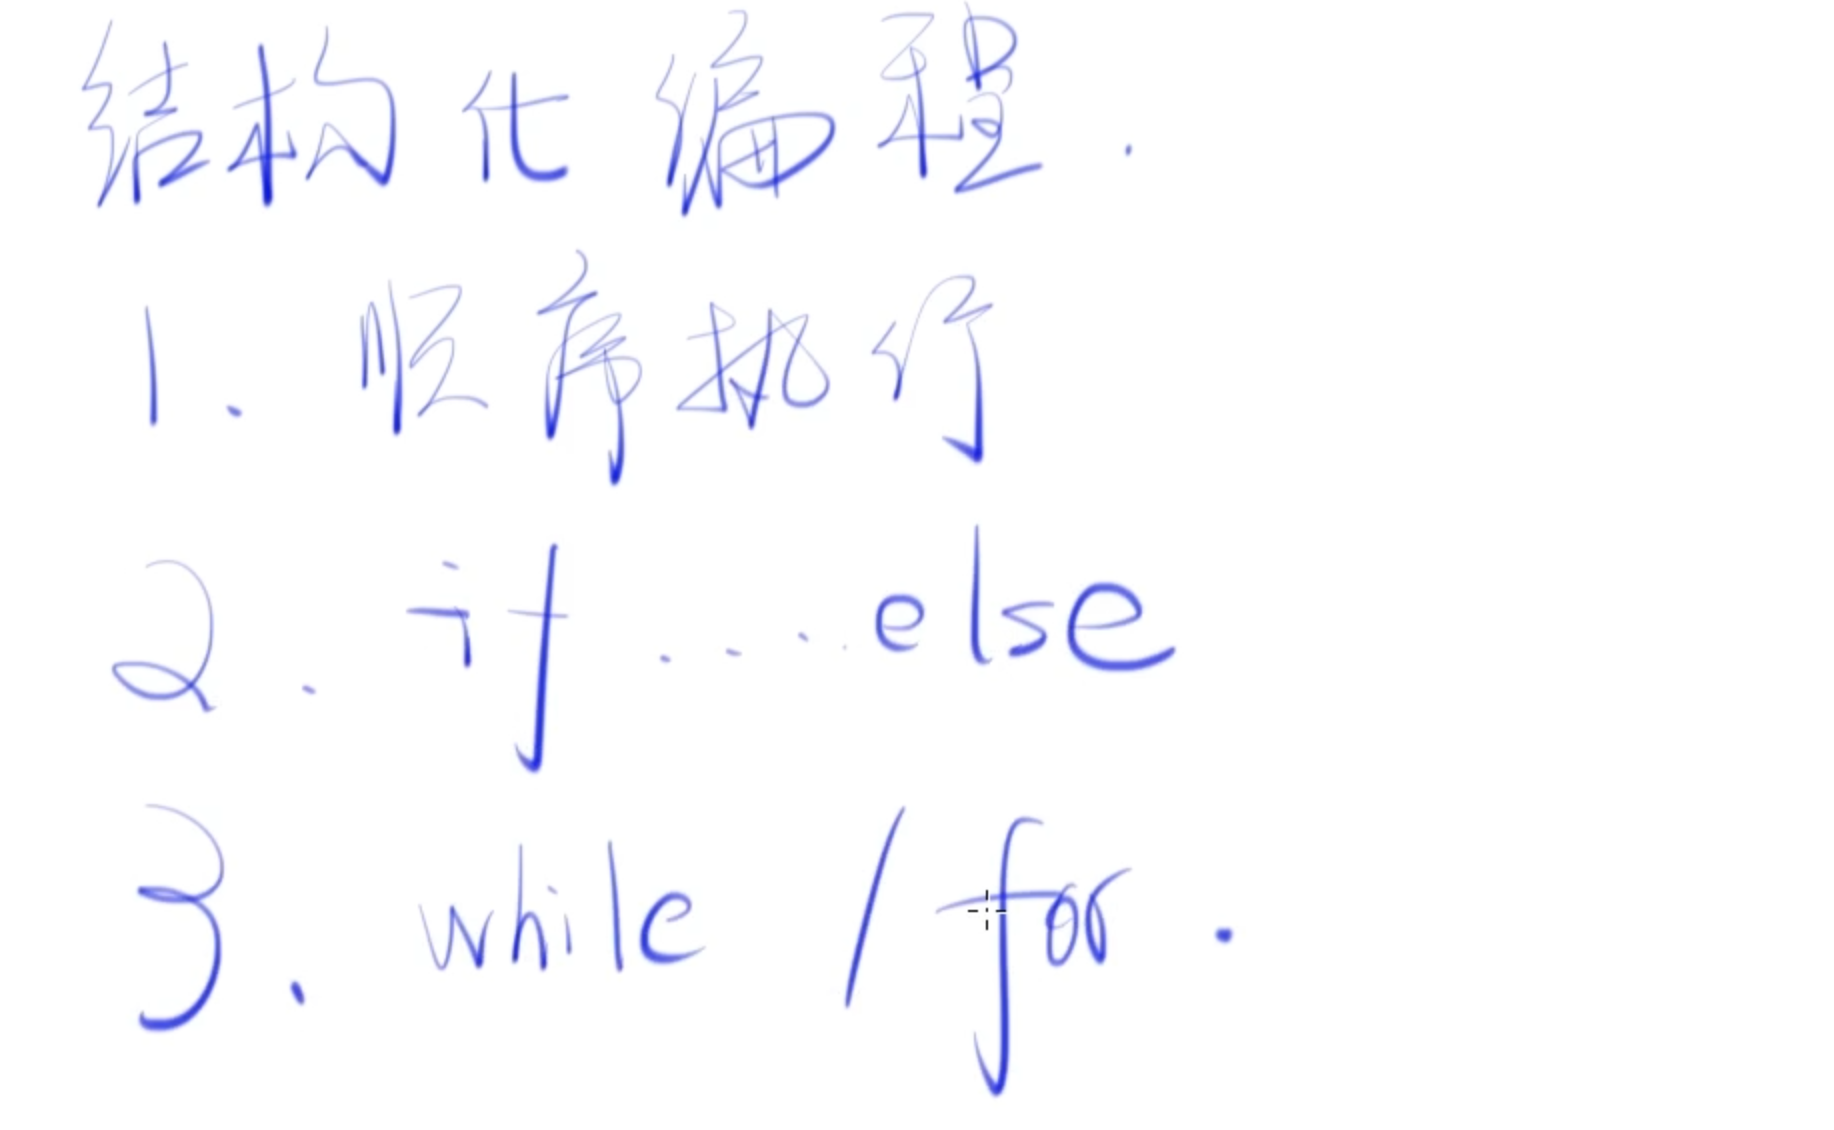 结构化编程.
1. 顺序执行
2. if....else
3. while / for.